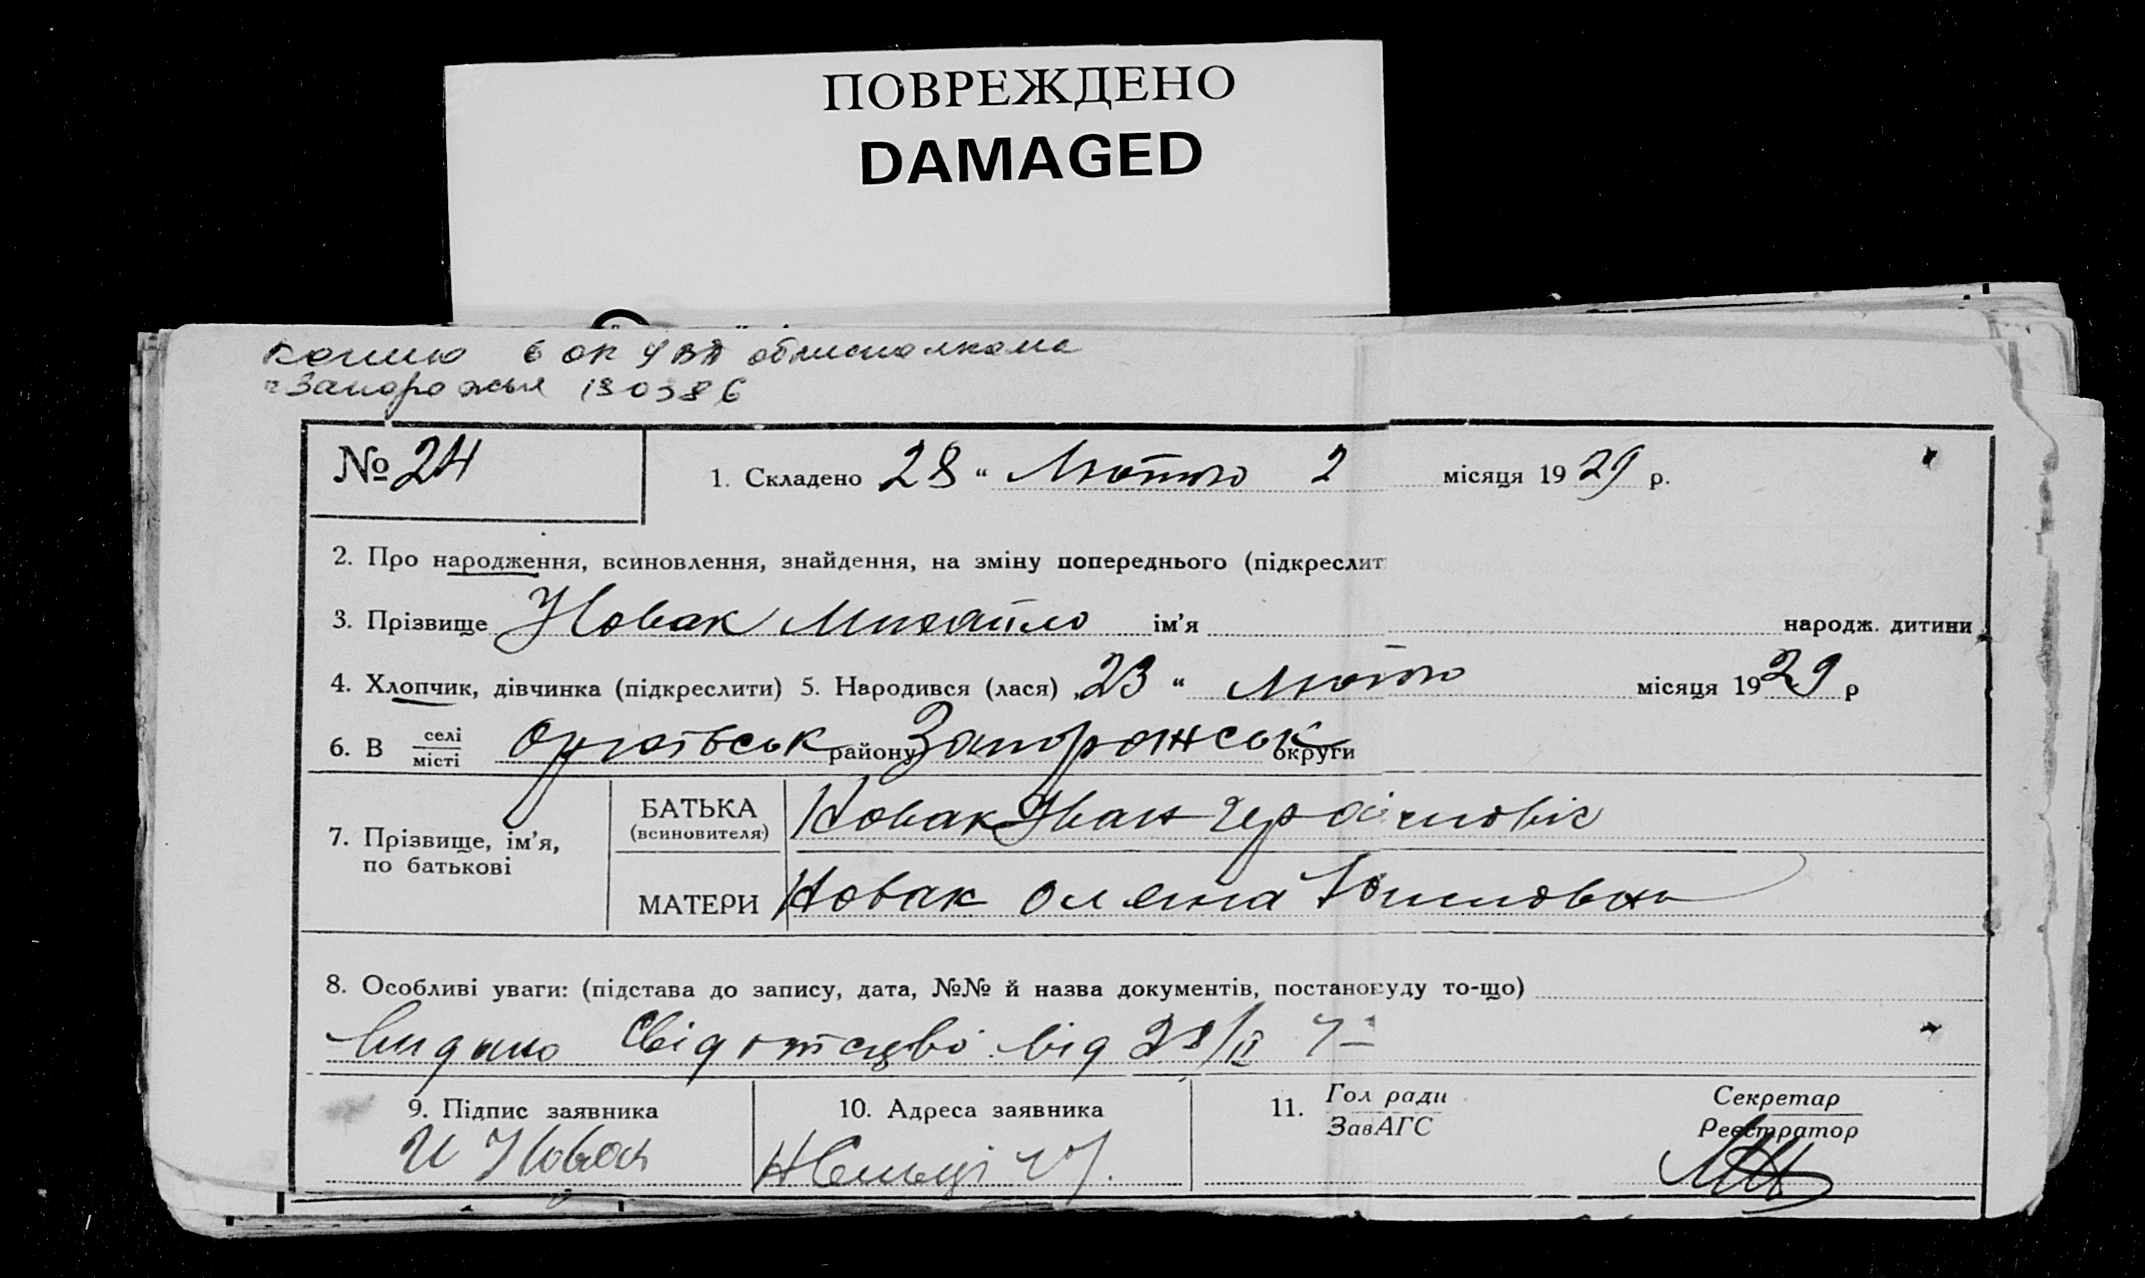 ПОВРЕЖДЕНО
DAMAGED
копию в ОК УВД облисполкома
г Запорожья 130386
№ 24
1. Складено 28 " Лютого 2 місяця 1929 р.
2. Про народження, всиновлення, знайдення, на зміну попереднього (підкреслит
3. Прізвище Новак Михайло ім'я народж. дитини
4. Хлопчик, дівчинка (підкреслити) 5. Народився (лася) 23 " Лютого місяця 1929 р
6. В селі
місті району Запорожськ округи
7. Прізвище, ім'я,
по батькові
БАТЬКА
(всиновителя)
Новак Іван
МАТЕРИ Новак Олена
8. Особливі уваги: (підстава до запису, дата, №№ й назва документів, постано уду то-що)
Видано Свідотство від 28/II
9. Підпис заявника
И Новак
10. Адреса заявника
11. Гол ради
ЗавАГС
Секретар
Реєстратор